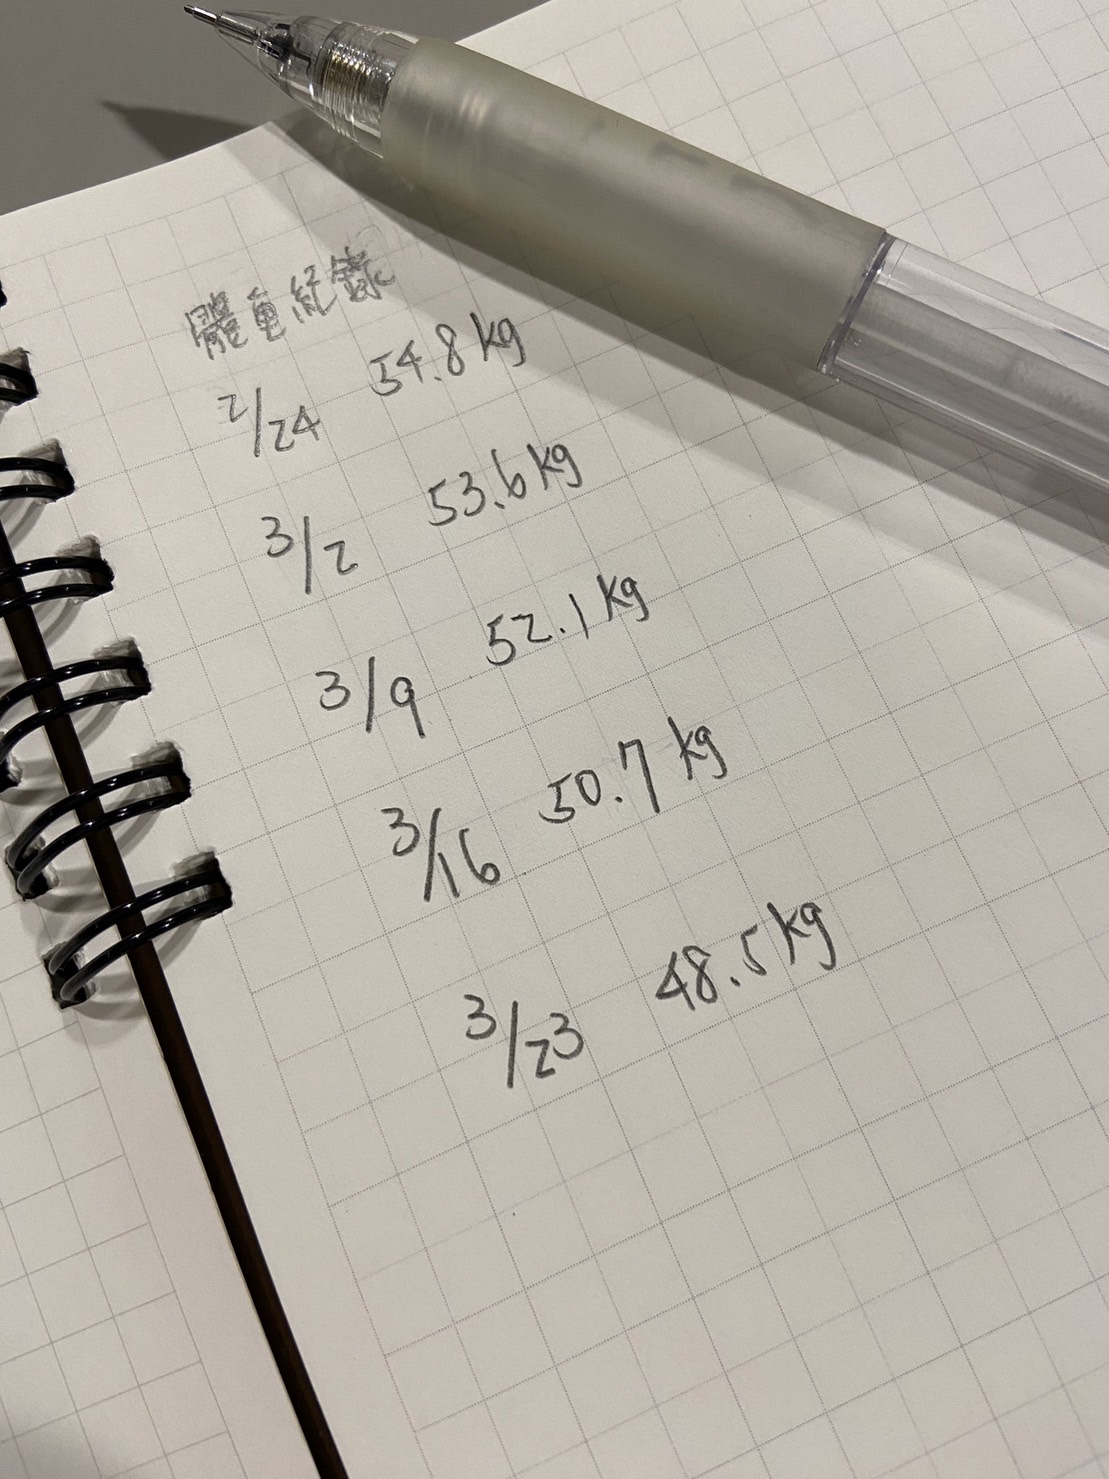 體重紀錄
2/24 54.8kg
3/2 53.6kg
3/9 52.1kg
3/16 50.7kg
3/23 48.5kg